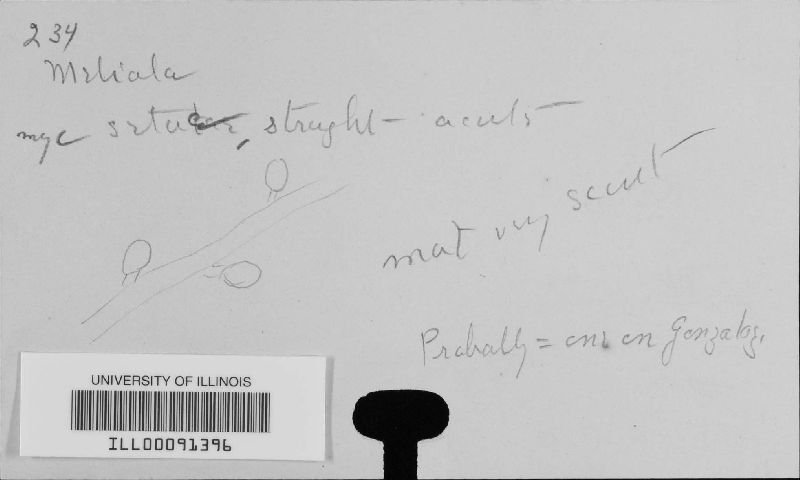 234
Meliola
myc setae, straight - acute
mat very scant
Probably = one on Gonzalag.
UNIVERSITY OF ILLINOIS
ILL00091396